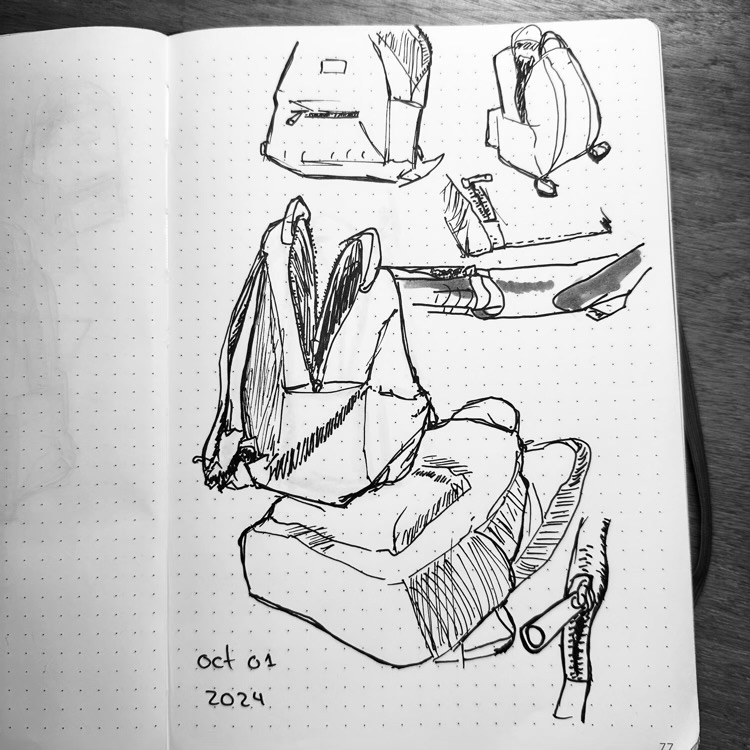 oct 01
2024
77